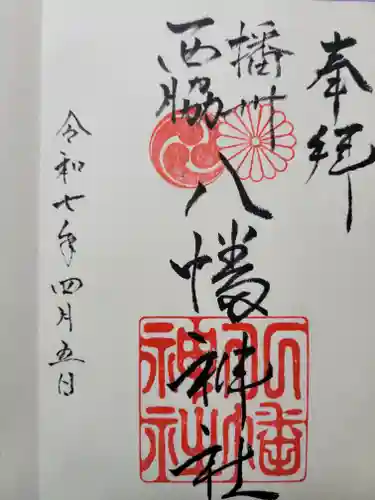 奉拝
播州
西脇
八幡神社
八幡
神社
令和七年四月五日